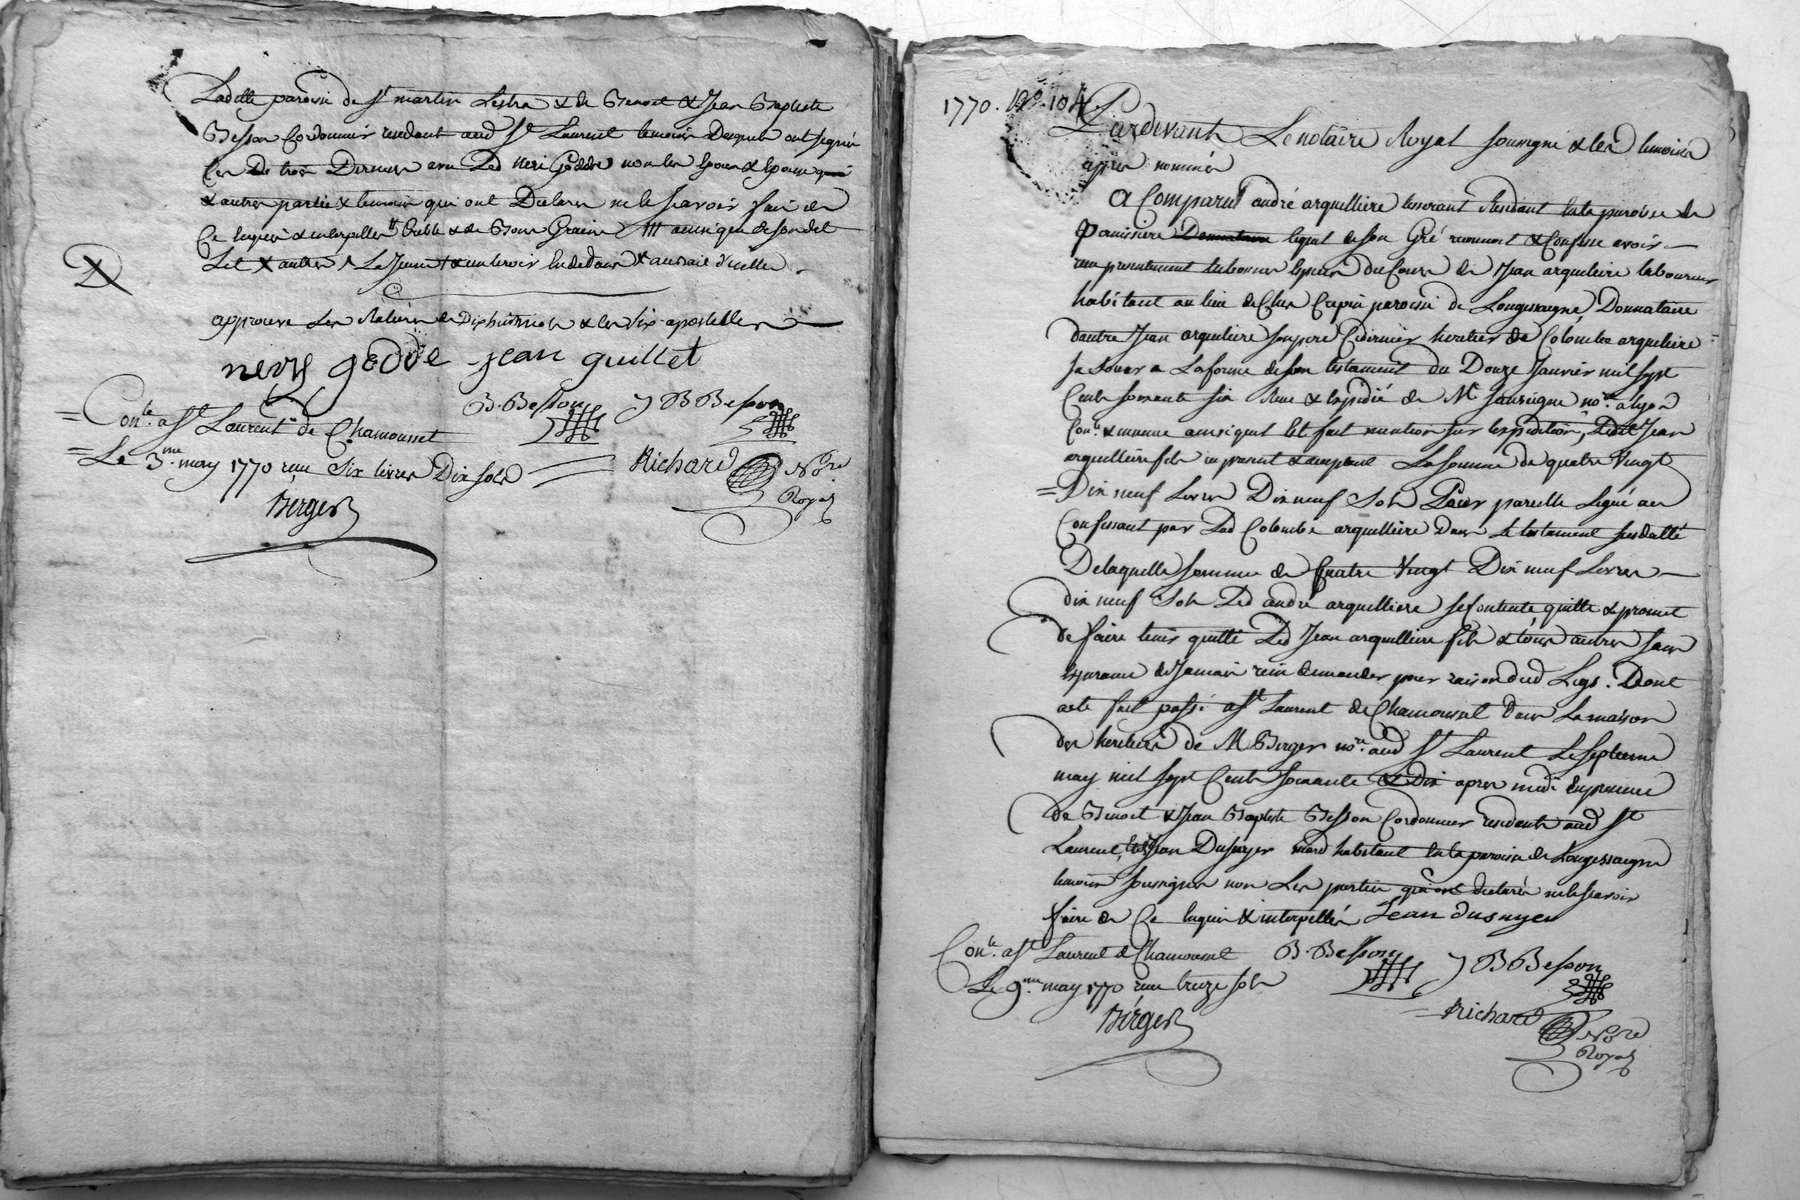 Ladite paroisse de St martin Lestra & de Benoit & Jean Baptiste
Besson Cordonnier residant aud St Laurent temoins Lesquels ont signé
Les trois avec Led Neri Godde non les Epoux & Epouse
& autres parties & temoins qui ont Declaré ne le scavoir faire de
Ce Enquis & interpellés
approuve Les Ratures de Dix huit mots & les six apostilles
neris godde jean guillet
B. Besson J B Besson
Conlé a St Laurent de Chamousset
Le 3me may 1770 reçu Six livres Dix sols
Richard Nore
Royal
Berger
1770. No. 104
Pardevant Le notaire Royal soussigné & les temoins
apres nommés
A Comparu andré arquilliere tisserant Residant En la paroisse de
Panissiere lequel de son Gré reconnoit & Confesse avoir
reçu presentement du Sieur Jean arquilliere laboureur
habitant au lieu de paroisse de Longessaigne Donnataire
dautre Jean arquilliere son pere Ce dernier heritier de Colombe arquilliere
sa Soeur a La forme de son testament du Douze Janvier mil sept
Cents soixante six Reçu & Expédié de Me no.re a lyon
Con.lé & insinué ainsi quil Est fait mention sur lexpedition, Ledit Jean
arquilliere fils icy present & acceptant La somme de quatre Vingt
Dix neuf Livres Dix neuf Sols Pour pareille Leguée au
Confessant par Lad Colombe arquilliere Dans Le testament susdatté
De laquelle somme de Quatre Vingt Dix neuf Livres
dix neuf Sols Led andré arquilliere se Contente quitte & promet
de faire tenir quitte Led Jean arquilliere fils & tous autres sans
Esperance de Jamais rien demander pour raison dud Legs. Dont
acte fait & passé a St Laurent de Chamousset Dans La maison
des heritiers de Me Berger nore. aud St Laurent Le sept
may mil sept Cents soixante & Dix apres midi En presence
de Benoit & Jean Baptiste Besson Cordonniers residants aud St
Laurent, & Jean Dusuyer habitant En la paroisse de Longessaigne
temoins soussignés non Les parties qui ont declaré ne le scavoir
faire de Ce Enquis & interpellés Jean dusuyer
Conlé. a St Laurent de Chamousset B. Besson J B Besson
Le 9me may 1770 reçu treize sols
Richard Nore
Royal
Berger